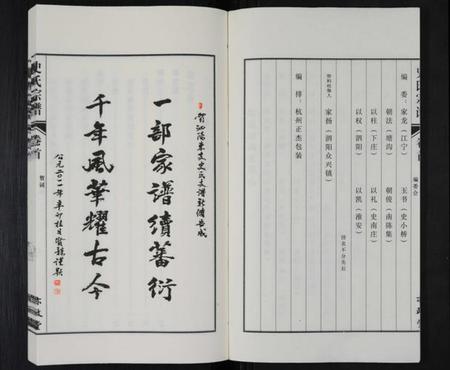 史氏宗谱
卷首
编委会
编 委：家龙（江宁） 玉书（史小桥）
朝法（塘沟） 朝俊（南陈集）
以柱（下庄） 以礼（史南庄）
以权（泗阳） 以凯（淮安）
排名不分先后
资料收集人
家扬（泗阳众兴镇）
编 排：杭州正杰包装
贺泗阳朱支史氏支谱新修告成
一部家谱续蕃衍
千年风华耀古今
公元二〇一一年辛卯桂月
史氏宗谱
卷首
贺词